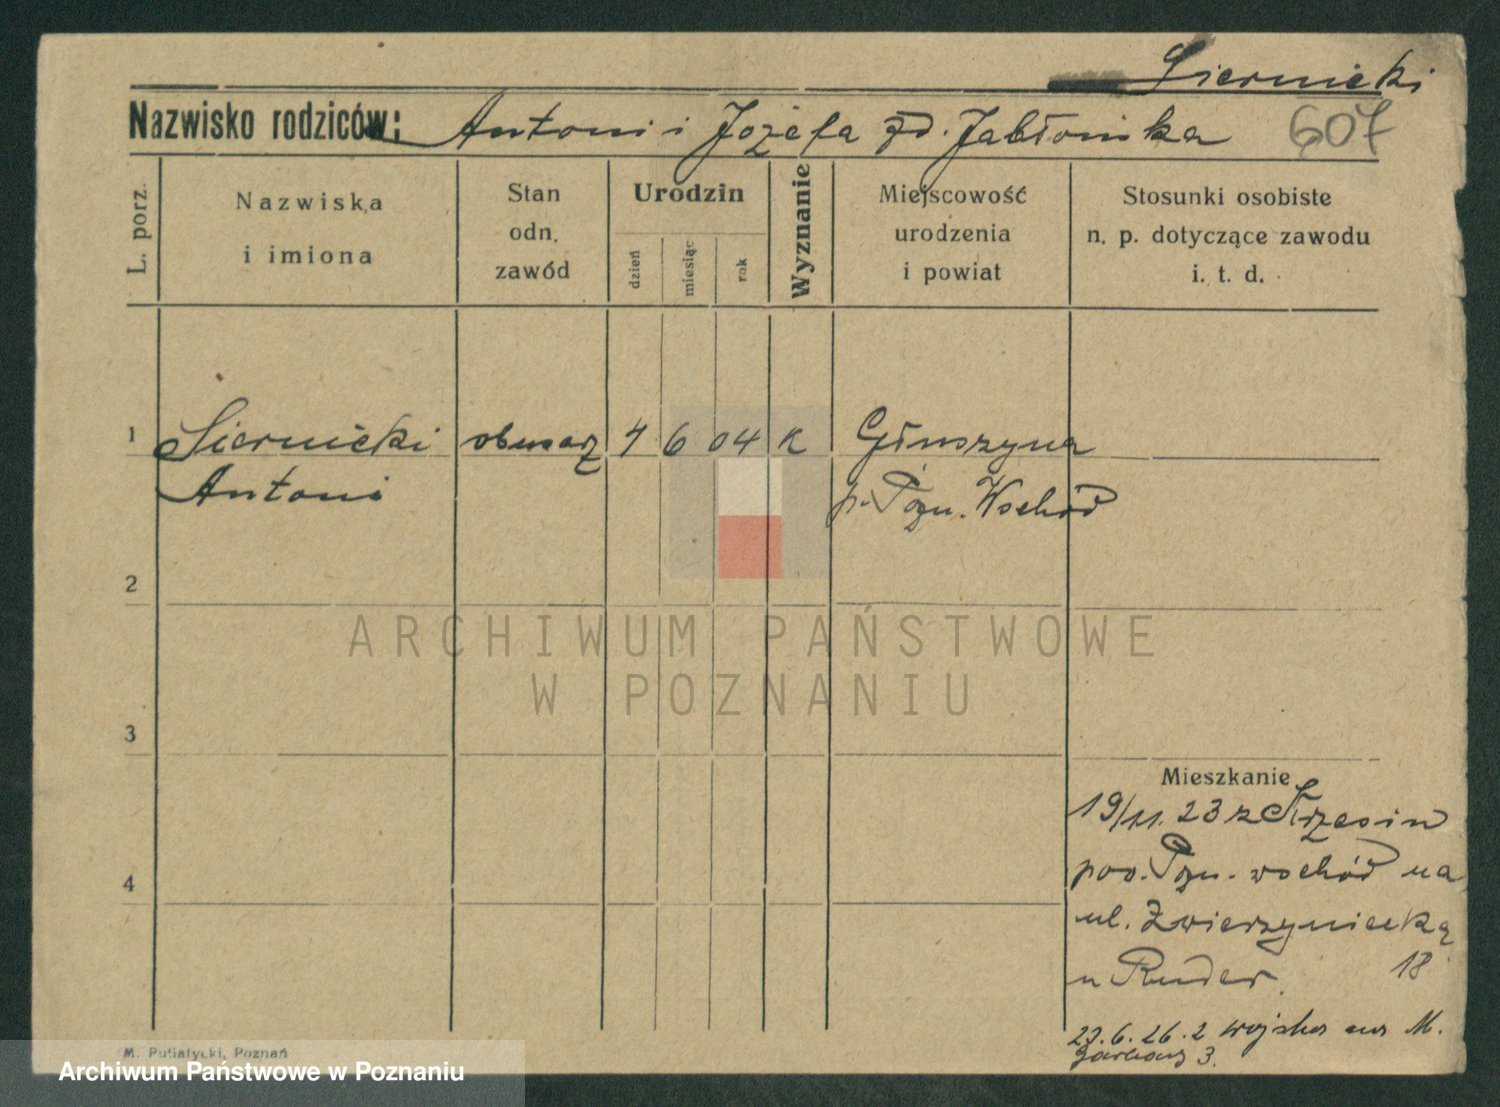 Siernicki
Nazwisko rodziców: Antoni i Józefa zd. Jabłońska 607
L. porz.
Nazwiska
i imiona
Stan
odn.
zawód
Urodzin
dzień
miesiąc
rok
Wyznanie
Miejscowość
urodzenia
i powiat
Stosunki osobiste
n. p. dotyczące zawodu
i. t. d.
1 Siernicki 4 6 04 K Głuszyna
Antoni p. Pozn. Wschód
2
ARCHIWUM PAŃSTWOWE
W POZNANIU
3
Mieszkanie
19/11. 23 z
4
pow. Pozn. wschód na
ul. Zwierzyniecką
u Ruder. 18
23.6.26. z wojska na M.
Garbary 3.
M. Putiatycki, Poznań
Archiwum Państwowe w Poznaniu